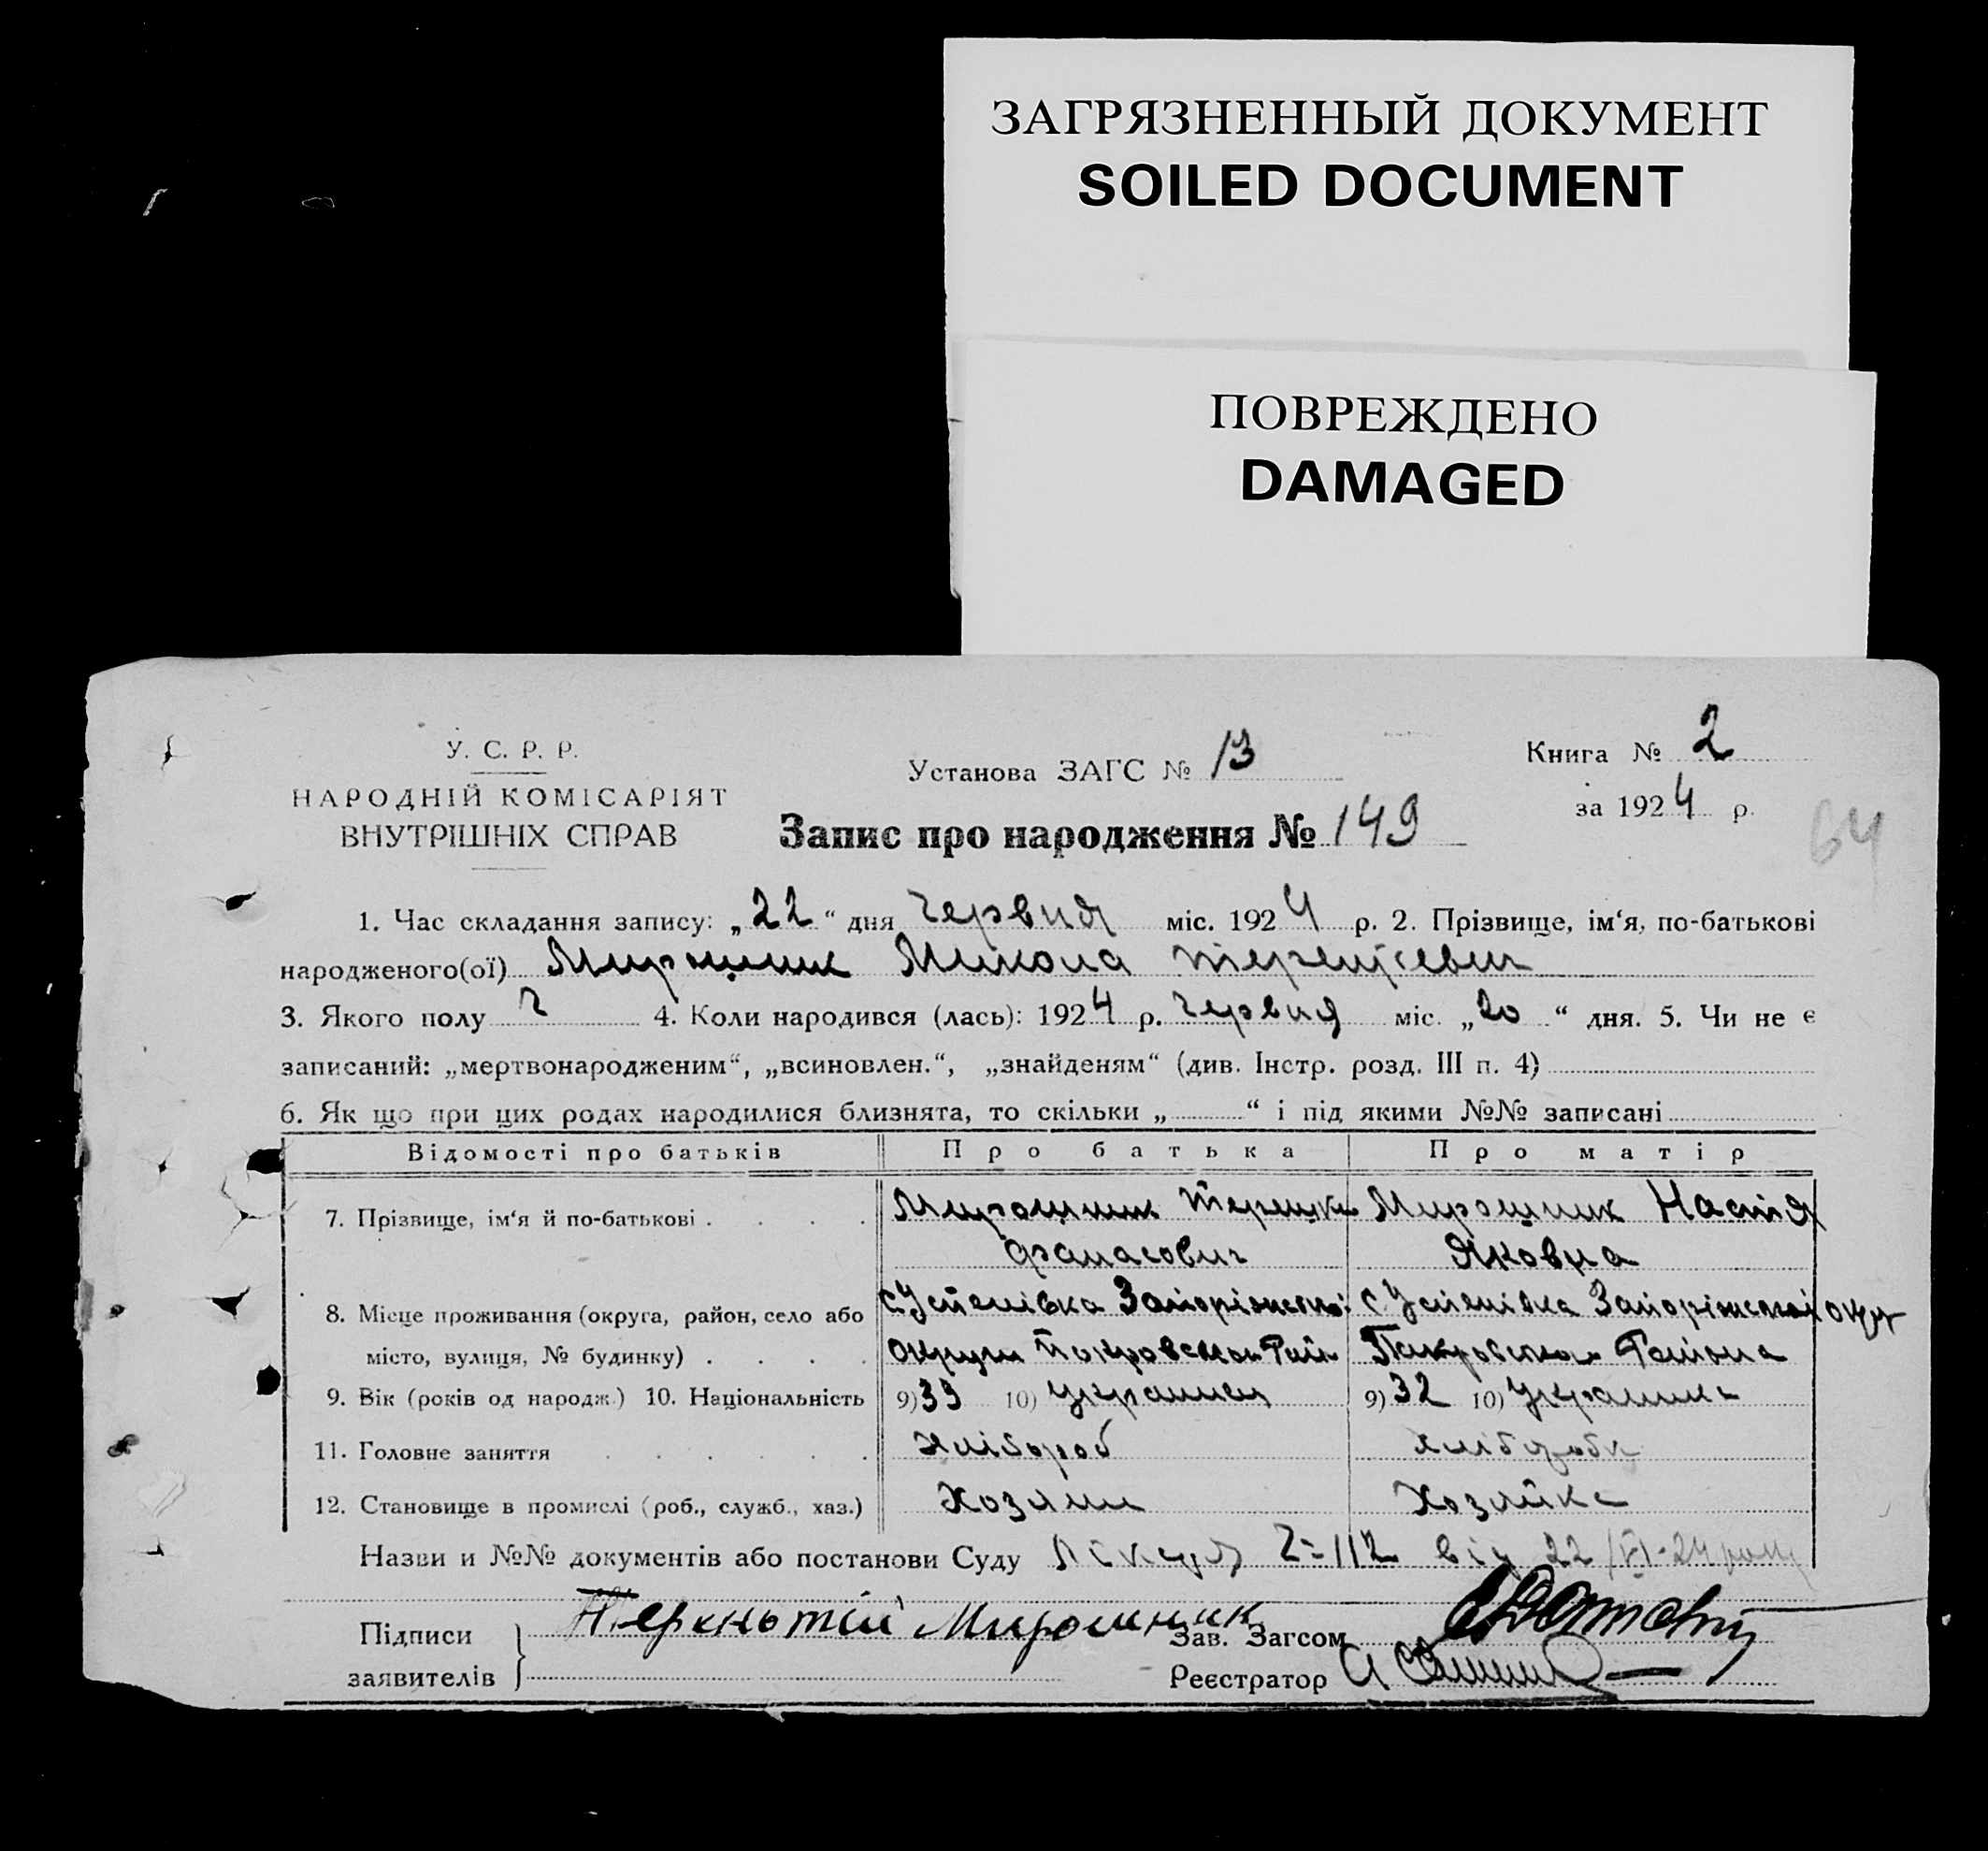 ЗАГРЯЗНЕННЫЙ ДОКУМЕНТ
SOILED DOCUMENT
ПОВРЕЖДЕНО
DAMAGED
У. С. Р. Р.
НАРОДНІЙ КОМІСАРІЯТ
ВНУТРІШНІХ СПРАВ
Установа ЗАГС № 13
Книга № 2
за 1924 р.
Запис про народження № 149
64
1. Час складання запису: „22“ дня червня міс. 1924 р. 2. Прізвище, ім‘я, по-батькові
народженого(ої) Мирошник Микола
3. Якого полу ч 4. Коли народився (лась): 1924 р. червня міс. „20“ дня. 5. Чи не є
записаний: „мертвонародженим“, „всиновлен.“, „знайденям“ (див. Інстр. розд. III п. 4)
6. Як що при цих родах народилися близнята, то скільки „ “ і під якими №№ записані
Відомості про батьків Про батька Про матір
7. Прізвище, ім‘я й по-батькові Мирошник Мирошник Настя
Яковна
8. Місце проживання (округа, район, село або с Успенівка с Успенівка
місто, вулиця, № будинку) округи
9. Вік (років од народж.) 10. Національність 9) 39 10) українец 9) 32 10) українка
11. Головне заняття хлібороб
12. Становище в промислі (роб., служб., хаз.) Хозяин Хозяйка
Назви и №№ документів або постанови Суду 112 від 22/VI-24 року
Підписи Мирошник Зав. Загсом
заявителів Реєстратор